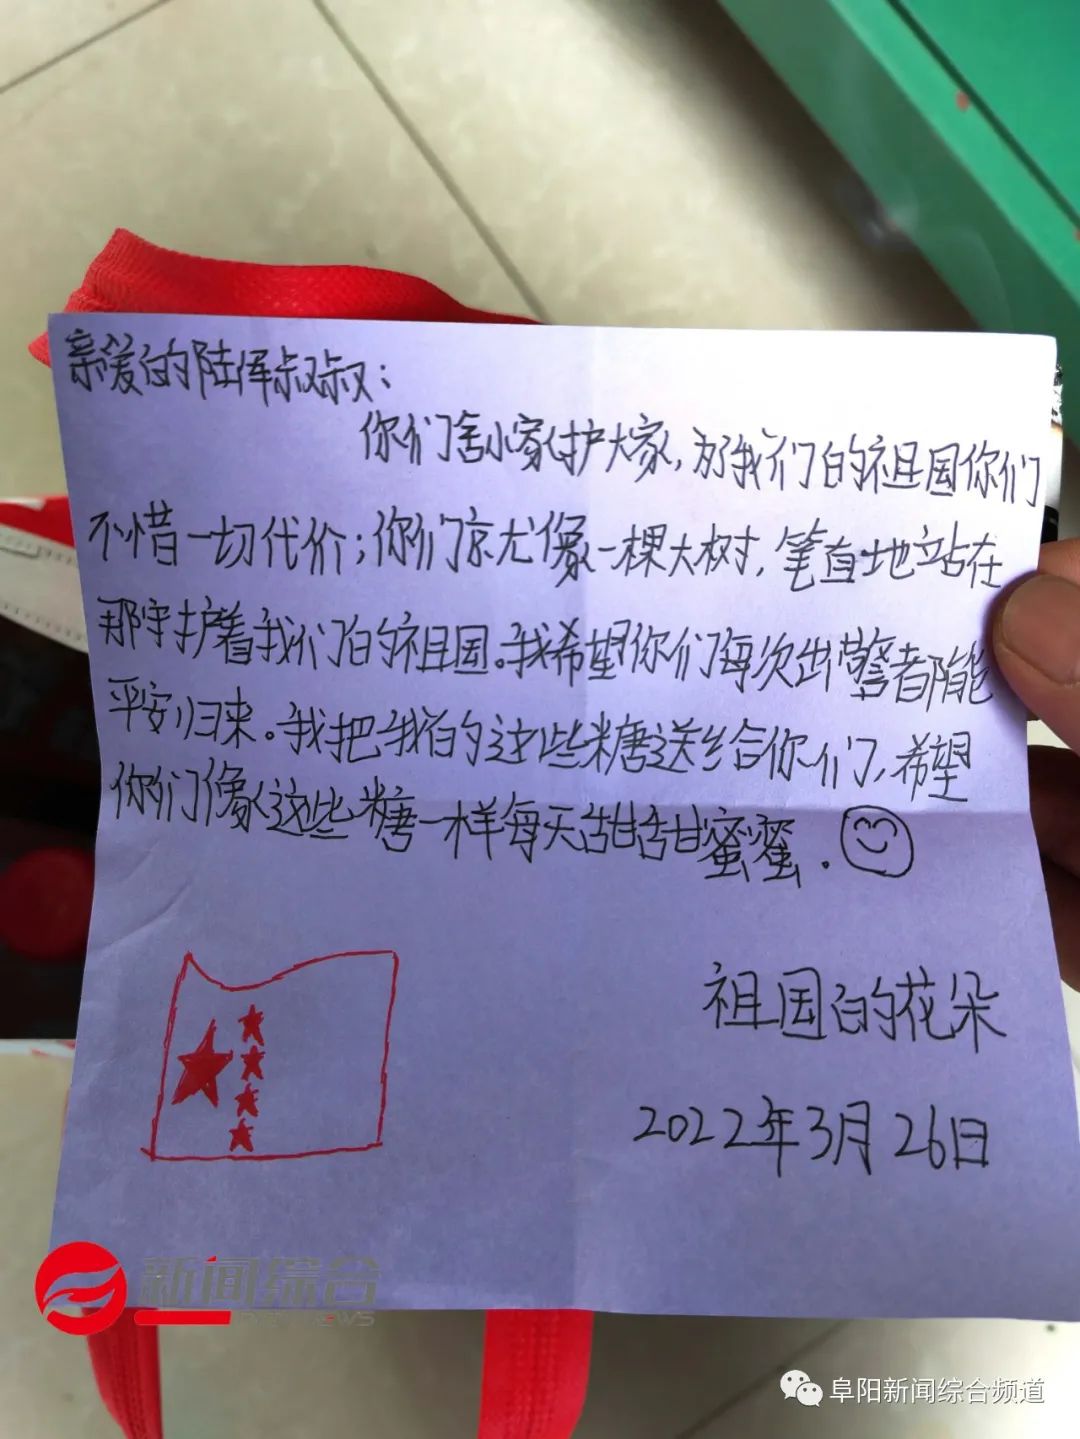 亲爱的陆浑叔叔：
你们舍小家护大家，为了我们的祖国你们
不惜一切代价；你们就像一棵大树，笔直地站在
那守护着我们的祖国。我希望你们每次出警都能
平安归来。我把我的这些糖送给你们，希望
你们像这些糖一样每天甜甜蜜蜜．
祖国的花朵
2022年3月26日
新闻综合
NEWS
阜阳新闻综合频道